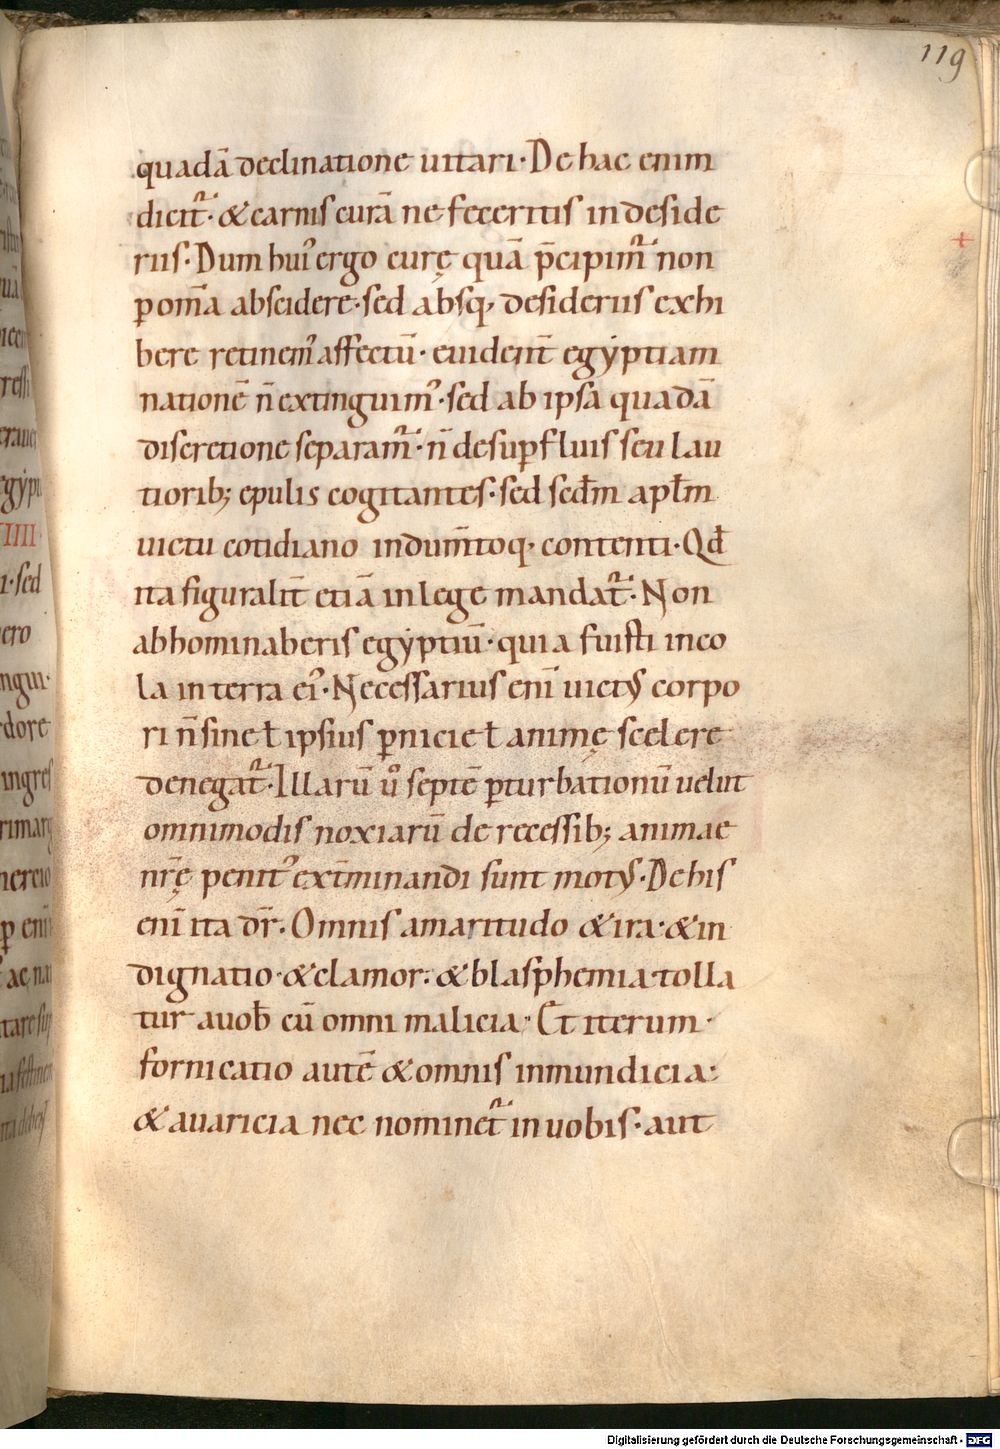 119
quadā declinatione uitari· De hac enim
dicit᷑· & carnis curā ne feceritis in deside
riis· Dum huiꝰ ergo curę quā p̄cipim᷑ non
ꝑ om̄a abscidere· sed absq, desideriis exhi
bere retinemꝰ affectū· euident̄ egyptiam
nationē n̄ extinguimꝰ· sed ab ipsa quadā
discretione separam᷑· n̄ de supfluis seu lau
tiorib; epulis cogitantes· sed scd̄m apłm
uictu cotidiano indum̄toq· contenti· Qđ
ita figuralit̄ etiā in lege mandat᷑· Non
abhominaberis egyptiū· quia fuisti inco
la in terra eiꝰ· Necessarius enī uictꝰ corpo
ri n̄ sine ł ipsius ꝑnicie ł animę scelere
denegat᷑· Illarū uͦ septē ꝑturbationū uelut
omnimodis noxiarū de recessib; animae
nr̄ę penitꝰ ext̄minandi sunt motꝰ· De his
enī ita dr̄· Omnis amaritudo & ira· & in
dignatio· & clamor· & blasphemia tolla
tur a uob̄ cū omni malicia· Et iterum·
fornicatio autē & omnis inmundicia·
& auaricia nec nominet᷑ in uobis· aut
Digitalisierung gefördert durch die Deutsche Forschungsgemeinschaft - DFG